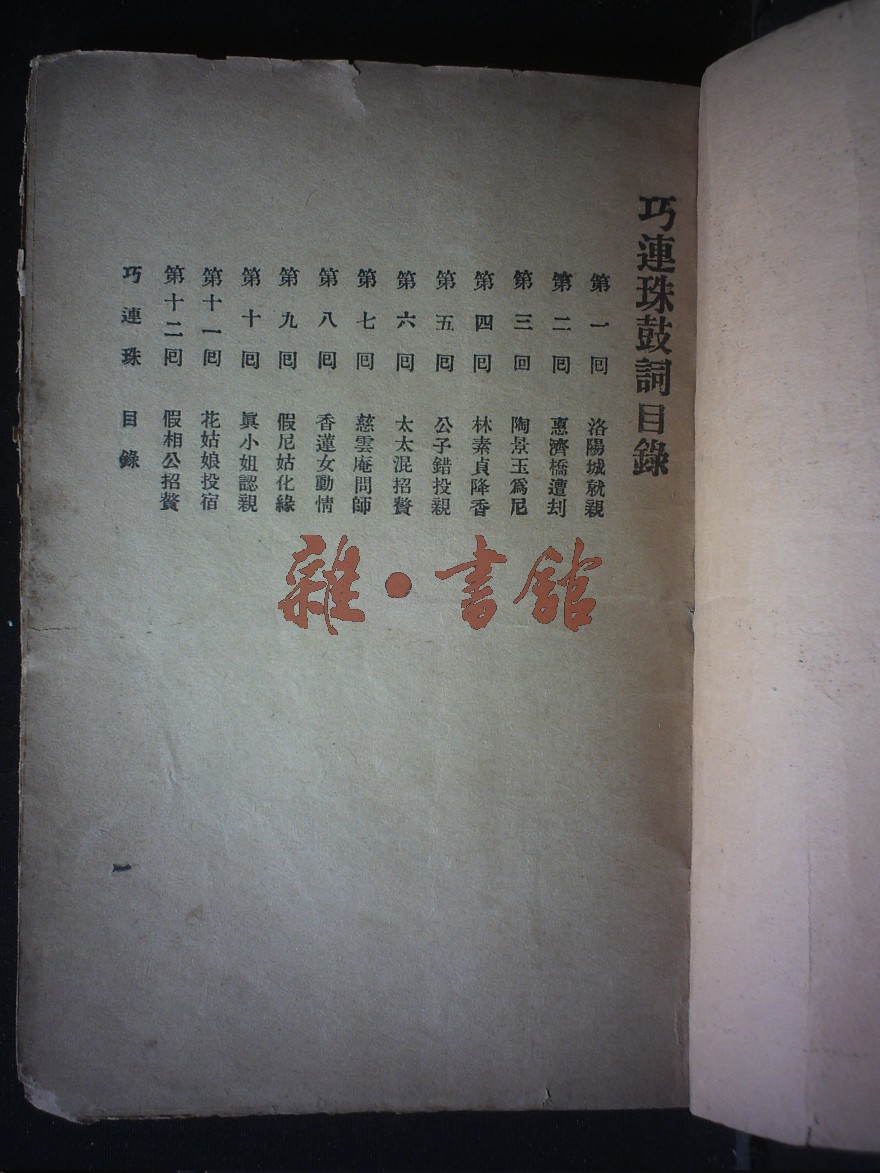 巧連珠鼓詞目錄
第一囘 洛陽城就親
第二囘 惠濟橋遭刦
第三回 陶景玉爲尼
第四囘 林素貞降香
第五囘 公子錯投親
第六囘 太太混招贅
第七囘 慈雲庵問師
第八囘 香蓮女動情
第九囘 假尼姑化緣
第十囘 眞小姐認親
第十一囘 花姑娘投宿
第十二囘 假相公招贅
巧連珠 目錄
一
雜·書館